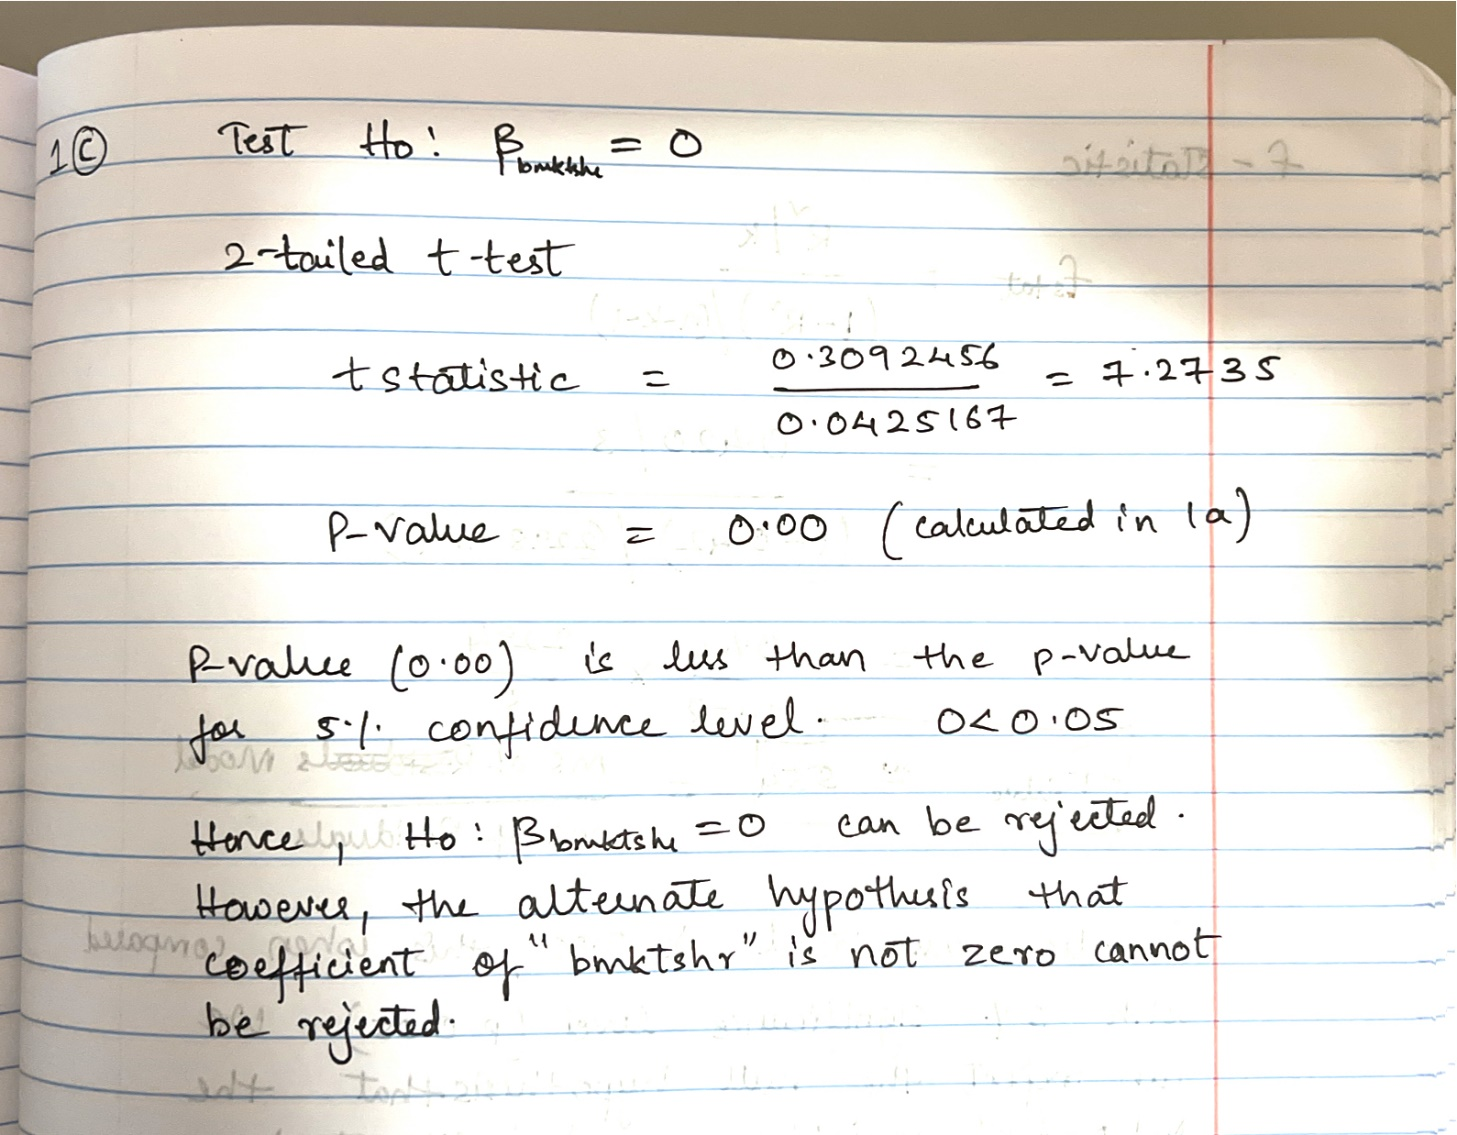 1(c) Test Ho: βbmktshr = 0
2-tailed t-test
t statistic = 0.3092456 / 0.0425167 = 7.2735
P-value = 0.00 (calculated in 1a)
P-value (0.00) is less than the p-value
for 5% confidence level. 0<0.05
Hence, Ho: βbmktshr = 0 can be rejected.
However, the alternate hypothesis that
coefficient of "bmktshr" is not zero cannot
be rejected.